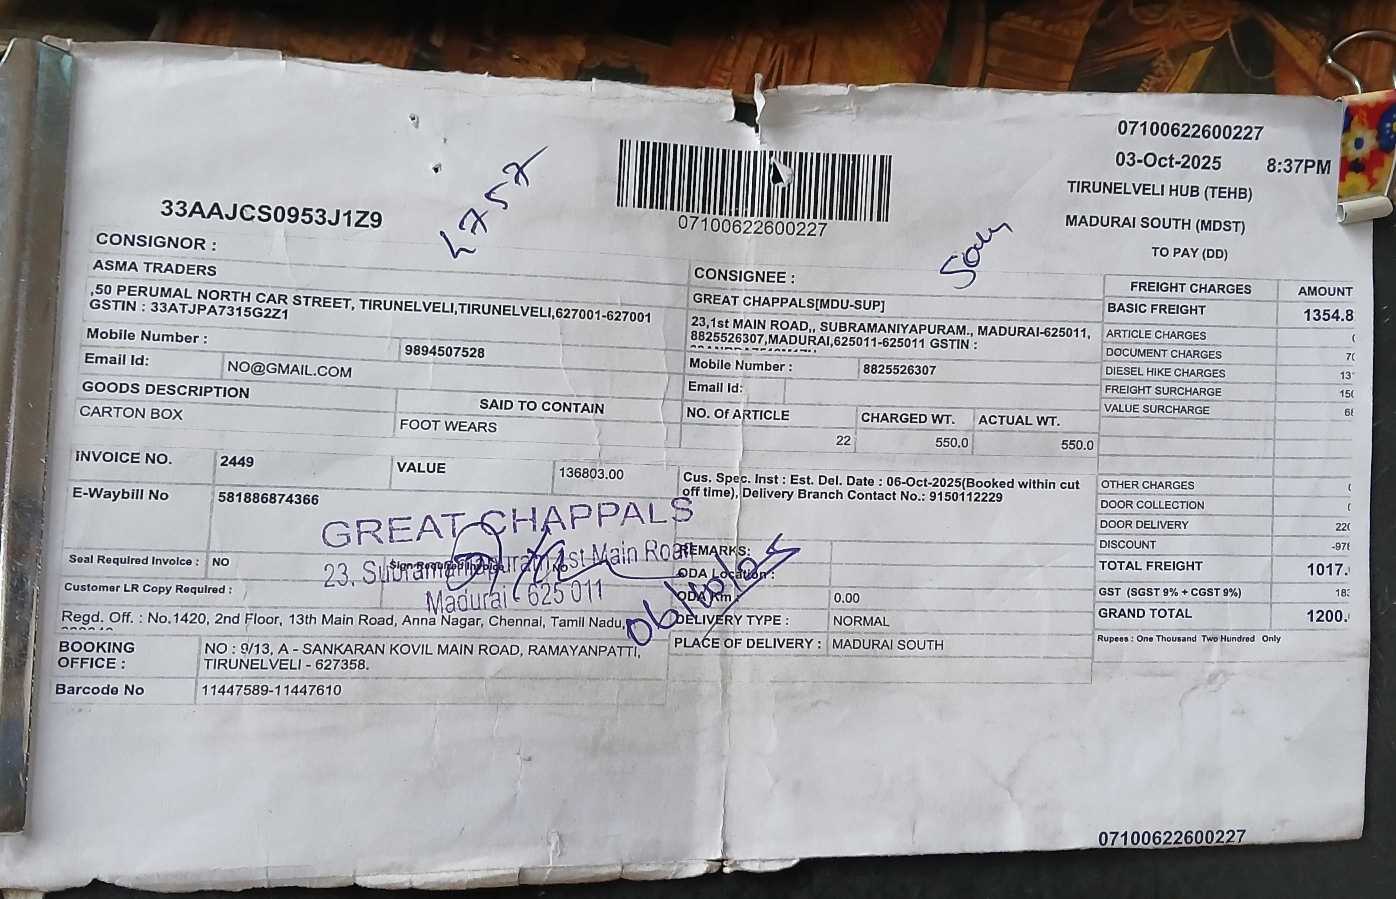 07100622600227
03-Oct-2025 8:37PM
TIRUNELVELI HUB (TEHB)
MADURAI SOUTH (MDST)
TO PAY (DD)
4757
07100622600227
33AAJCS0953J1Z9
CONSIGNOR :
ASMA TRADERS
,50 PERUMAL NORTH CAR STREET, TIRUNELVELI,TIRUNELVELI,627001-627001
GSTIN : 33ATJPA7315G2Z1
Mobile Number : 9894507528
Email Id: NO@GMAIL.COM
GOODS DESCRIPTION SAID TO CONTAIN
CARTON BOX FOOT WEARS
INVOICE NO. 2449 VALUE 136803.00
E-Waybill No 581886874366
Seal Required Invoice : NO Sign Required Invoice No
Customer LR Copy Required :
Regd. Off. : No.1420, 2nd Floor, 13th Main Road, Anna Nagar, Chennai, Tamil Nadu,
BOOKING OFFICE : NO : 9/13, A - SANKARAN KOVIL MAIN ROAD, RAMAYANPATTI,
TIRUNELVELI - 627358.
Barcode No 11447589-11447610
CONSIGNEE :
GREAT CHAPPALS[MDU-SUP]
23,1st MAIN ROAD,, SUBRAMANIYAPURAM., MADURAI-625011,
8825526307,MADURAI,625011-625011 GSTIN :
Mobile Number : 8825526307
Email Id:
NO. OF ARTICLE CHARGED WT. ACTUAL WT.
22 550.0 550.0
Cus. Spec. Inst : Est. Del. Date : 06-Oct-2025(Booked within cut
off time), Delivery Branch Contact No.: 9150112229
REMARKS:
ODA Location :
ODA Km : 0.00
DELIVERY TYPE : NORMAL
PLACE OF DELIVERY : MADURAI SOUTH
GREAT CHAPPALS
23, Subramaniapuram 1st Main Road
Madurai - 625 011
FREIGHT CHARGES AMOUNT
BASIC FREIGHT 1354.8
ARTICLE CHARGES
DOCUMENT CHARGES
DIESEL HIKE CHARGES
FREIGHT SURCHARGE
VALUE SURCHARGE
OTHER CHARGES
DOOR COLLECTION
DOOR DELIVERY
DISCOUNT
TOTAL FREIGHT 1017.
GST (SGST 9% + CGST 9%)
GRAND TOTAL 1200.
Rupees : One Thousand Two Hundred Only
07100622600227